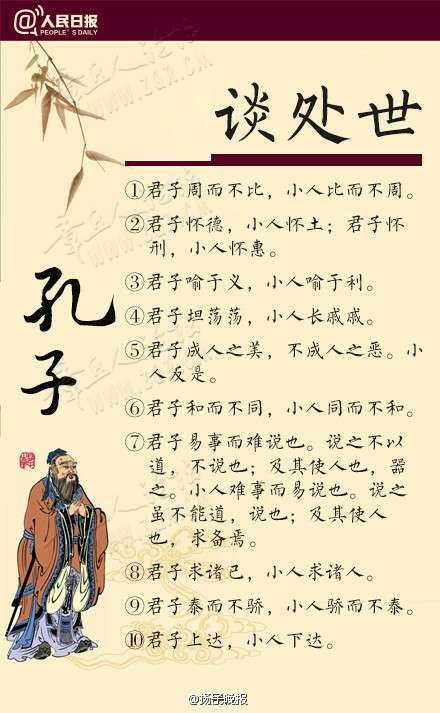 @人民日报
PEOPLE'S DAILY
谈处世
孔子
①君子周而不比，小人比而不周。
②君子怀德，小人怀土；君子怀
刑，小人怀惠。
③君子喻于义，小人喻于利。
④君子坦荡荡，小人长戚戚。
⑤君子成人之美，不成人之恶。小
人反是。
⑥君子和而不同，小人同而不和。
⑦君子易事而难说也。说之不以
道，不说也；及其使人也，器
之。小人难事而易说也。说之
虽不能道，说也；及其使人
也，求备焉。
⑧君子求诸己，小人求诸人。
⑨君子泰而不骄，小人骄而不泰。
⑩君子上达，小人下达。
@扬子晚报